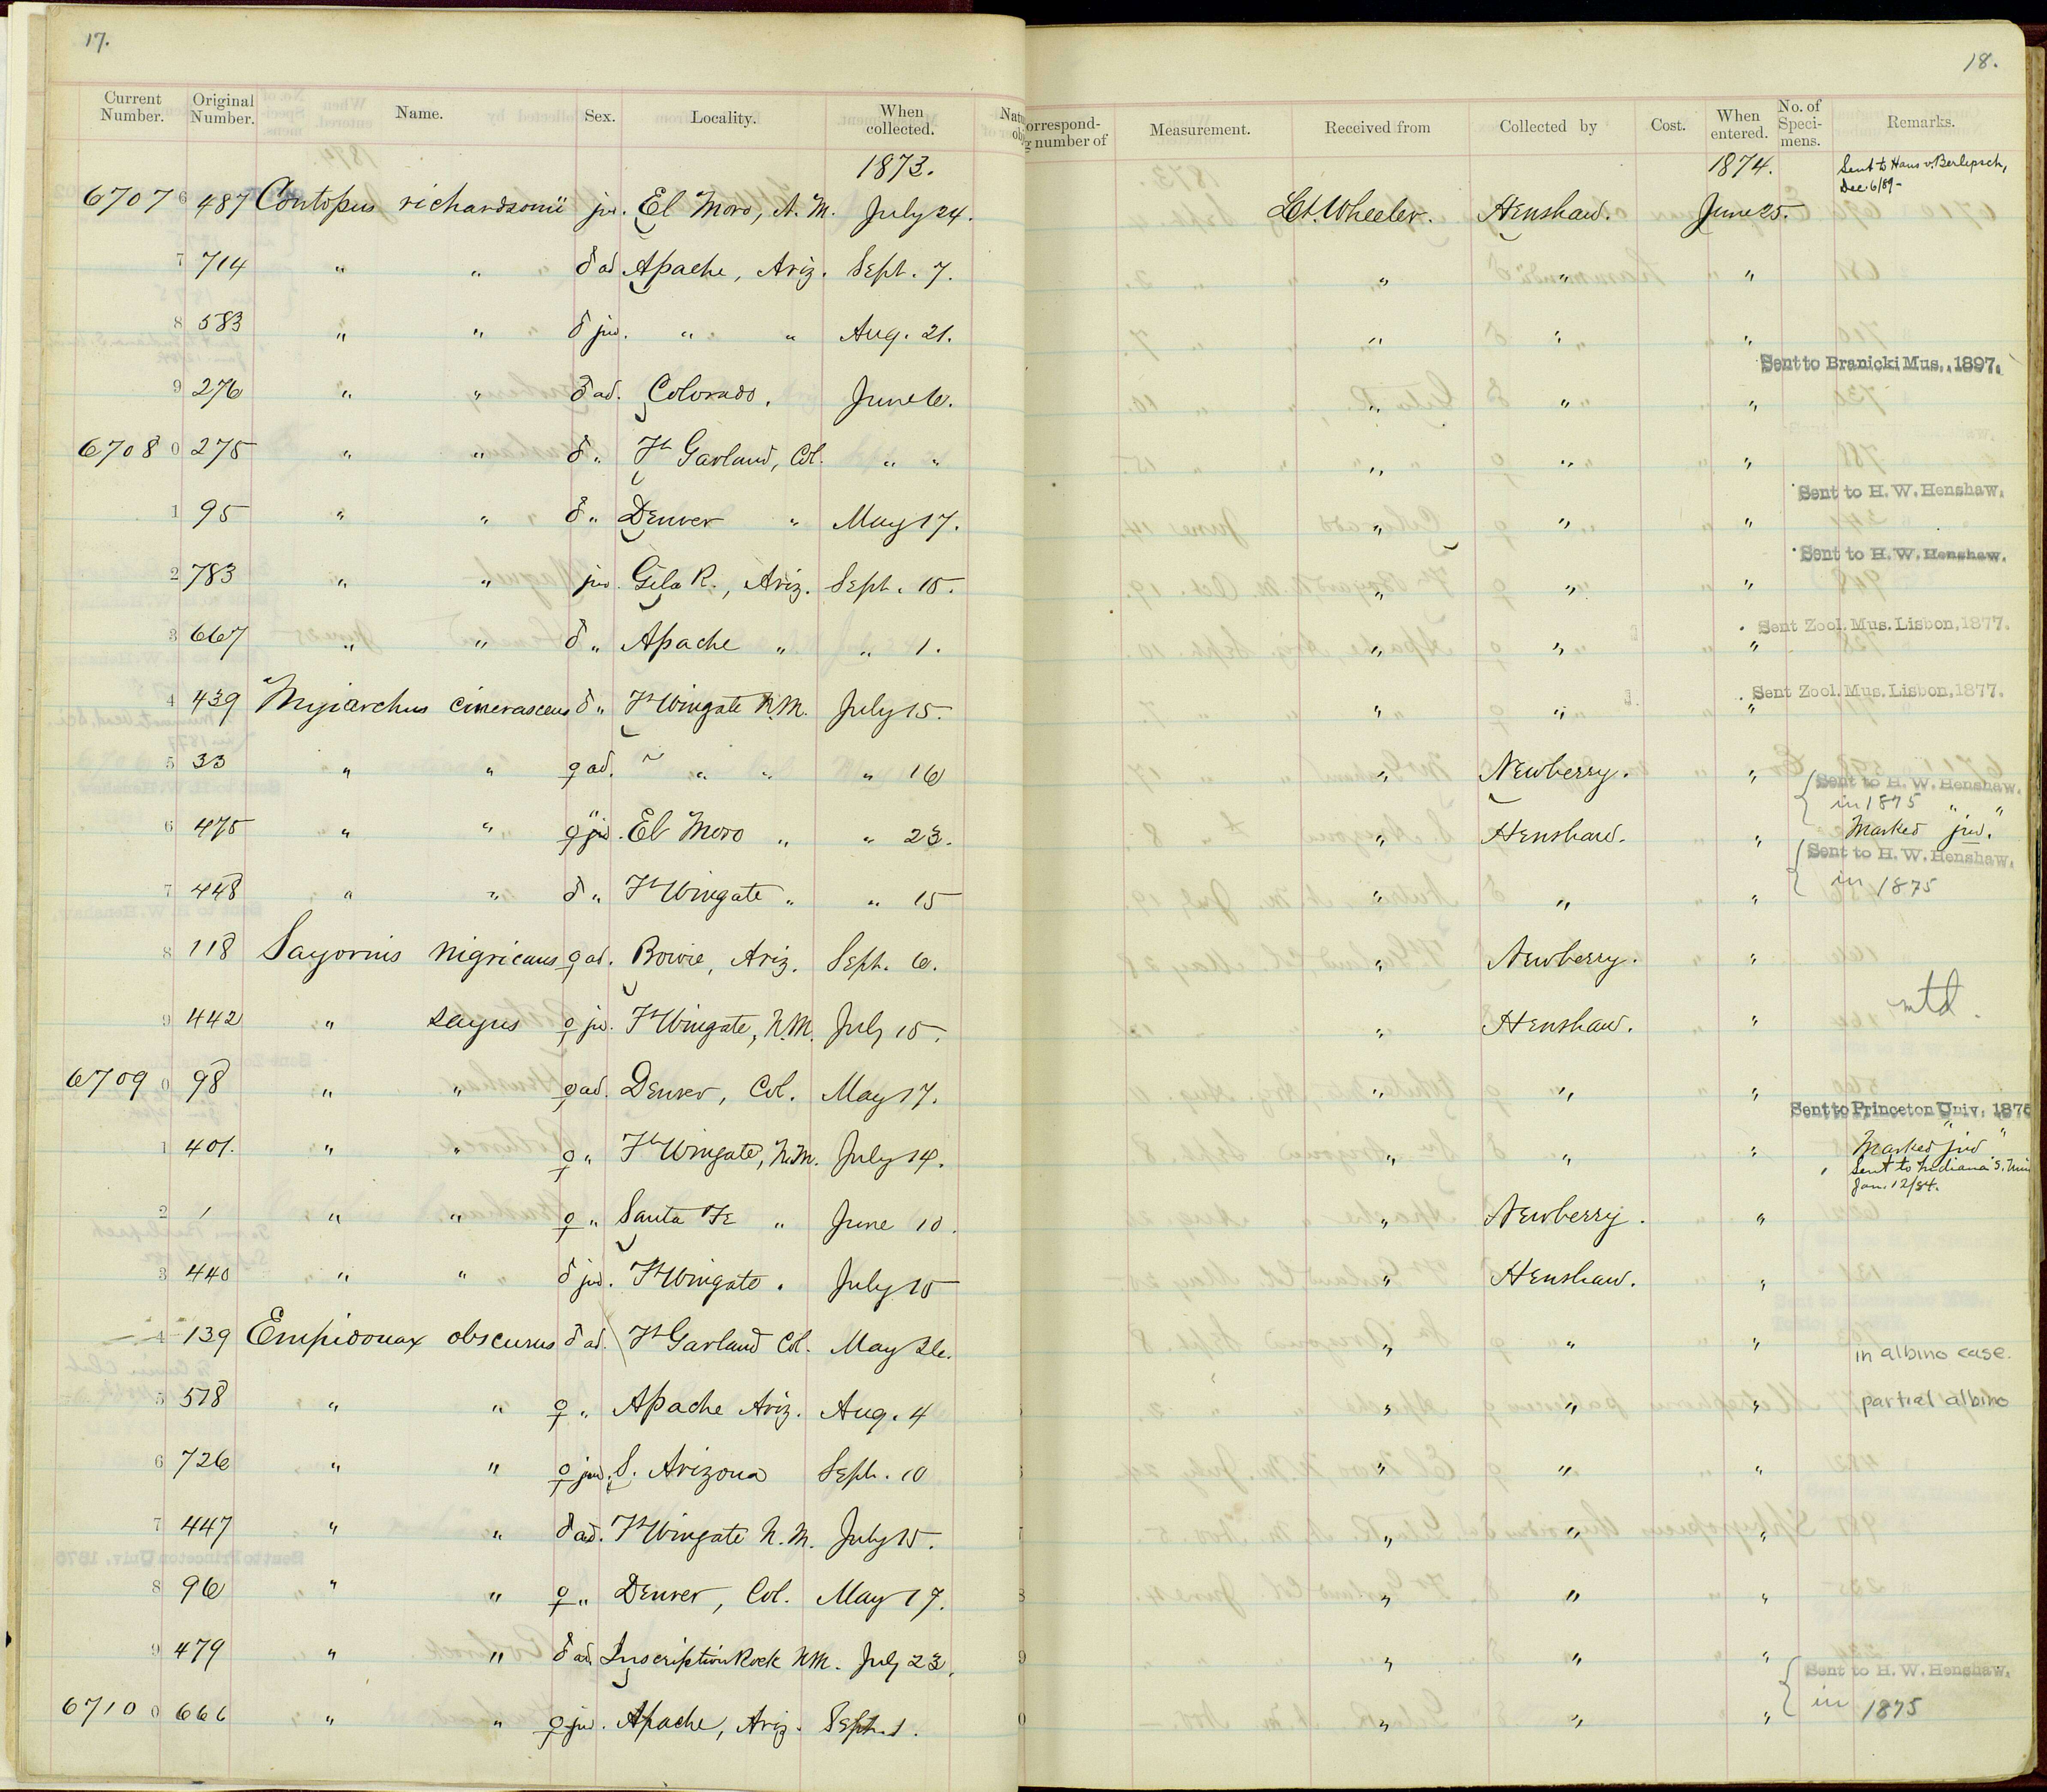 17.
18.
Current Number. Original Number. Name. Sex. Locality. When collected. Measurement. Received from Collected by Cost. When entered. No. of Specimens. Remarks.
1873. 1874. Sent to Hans v. Berlepsch, Dec. 6/89-
6707 6 487 Contopus richardsonii juv. El Moro, N. M. July 24. Lt. Wheeler. Henshaw. June 25.
7 714 " " ♂ ad Apache, Ariz. Sept. 7. " " "
8 583 " " ♂ juv. " " Aug. 21. " " "
Sent to Branicki Mus., 1897.
9 276 " " ♂ ad. Colorado. June 6. " " "
6708 0 275 " " ♂ " Ft Garland, Col. " " " " "
Sent to H. W. Henshaw.
1 95 " " ♂ " Denver " May 17. " " "
Sent to H. W. Henshaw.
2 783 " " juv. Gila R., Ariz. Sept. 15. " " "
Sent Zool. Mus. Lisbon, 1877.
3 667 " " ♂ " Apache " " 1. " " "
Sent Zool. Mus. Lisbon, 1877.
4 439 Myiarchus cinerascens ♂ " Ft Wingate N.M. July 15. " " "
5 33 " " ♀ ad. " " " " 16 " Newberry. "
Sent to H. W. Henshaw. in 1875 " "
6 475 " " ♀ juv. El Moro " " 23. " Henshaw. " Marked juv.
Sent to H. W. Henshaw. in 1875
7 448 " " ♂ " Ft Wingate " " 15 " " "
8 118 Sayornis nigricans ♀ ad. Bowie, Ariz. Sept. 6. " Newberry. "
9 442 " sayus ♀ juv. Ft Wingate, N.M. July 15. " Henshaw. " mtd.
6709 0 98 " " ♀ ad. Denver, Col. May 17. " " "
Sent to Princeton Univ. 1876
1 401. " " ♀ " Ft Wingate, N.M. July 14. " " " Marked juv " "
Sent to Indiana S. Jan. 12/84.
2 1 " " ♀ " Santa Fe " June 10. " Newberry. "
3 440 " " ♂ juv. Ft Wingate. July 15 " Henshaw. "
4 139 Empidonax obscurus ♂ ad. Ft Garland Col. May 26. " " " in albino case.
5 518 " " ♀ " Apache Ariz. Aug. 4 " " " partial albino
6 726 " " ♀ juv. S. Arizona Sept. 10 " " "
7 447 " " ♂ ad. Ft Wingate N.M. July 15. " " "
8 96 " " ♀ " Denver, Col. May 17. " " "
9 479 " " ♂ ad. Inscription Rock N.M. July 23. " " "
Sent to H. W. Henshaw. in 1875
6710 0 666 " " ♀ juv. Apache, Ariz. Sept. 1. " " "